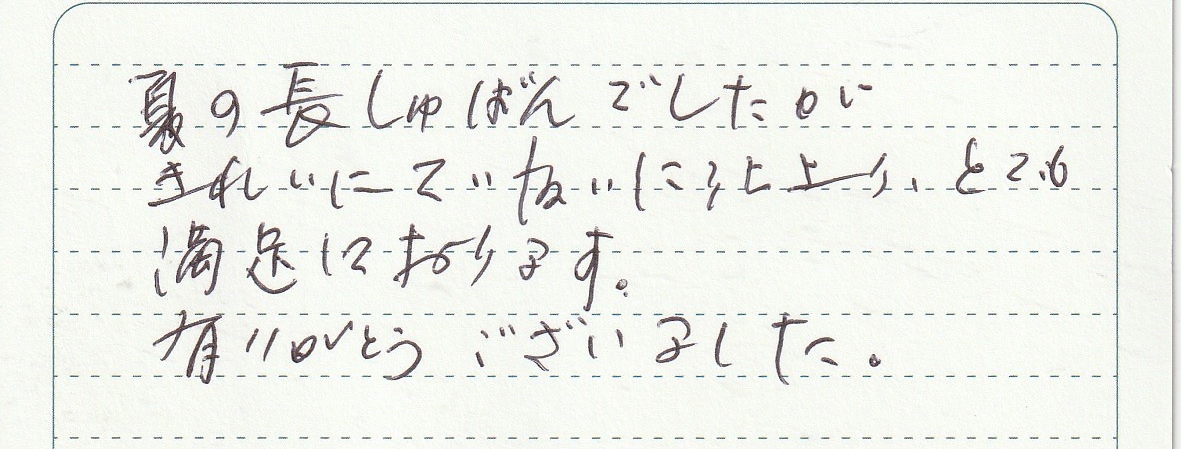 夏の長じゅばんでしたが
きれいにていねいに仕上り、とても
満足しております。
有りがとうございました。